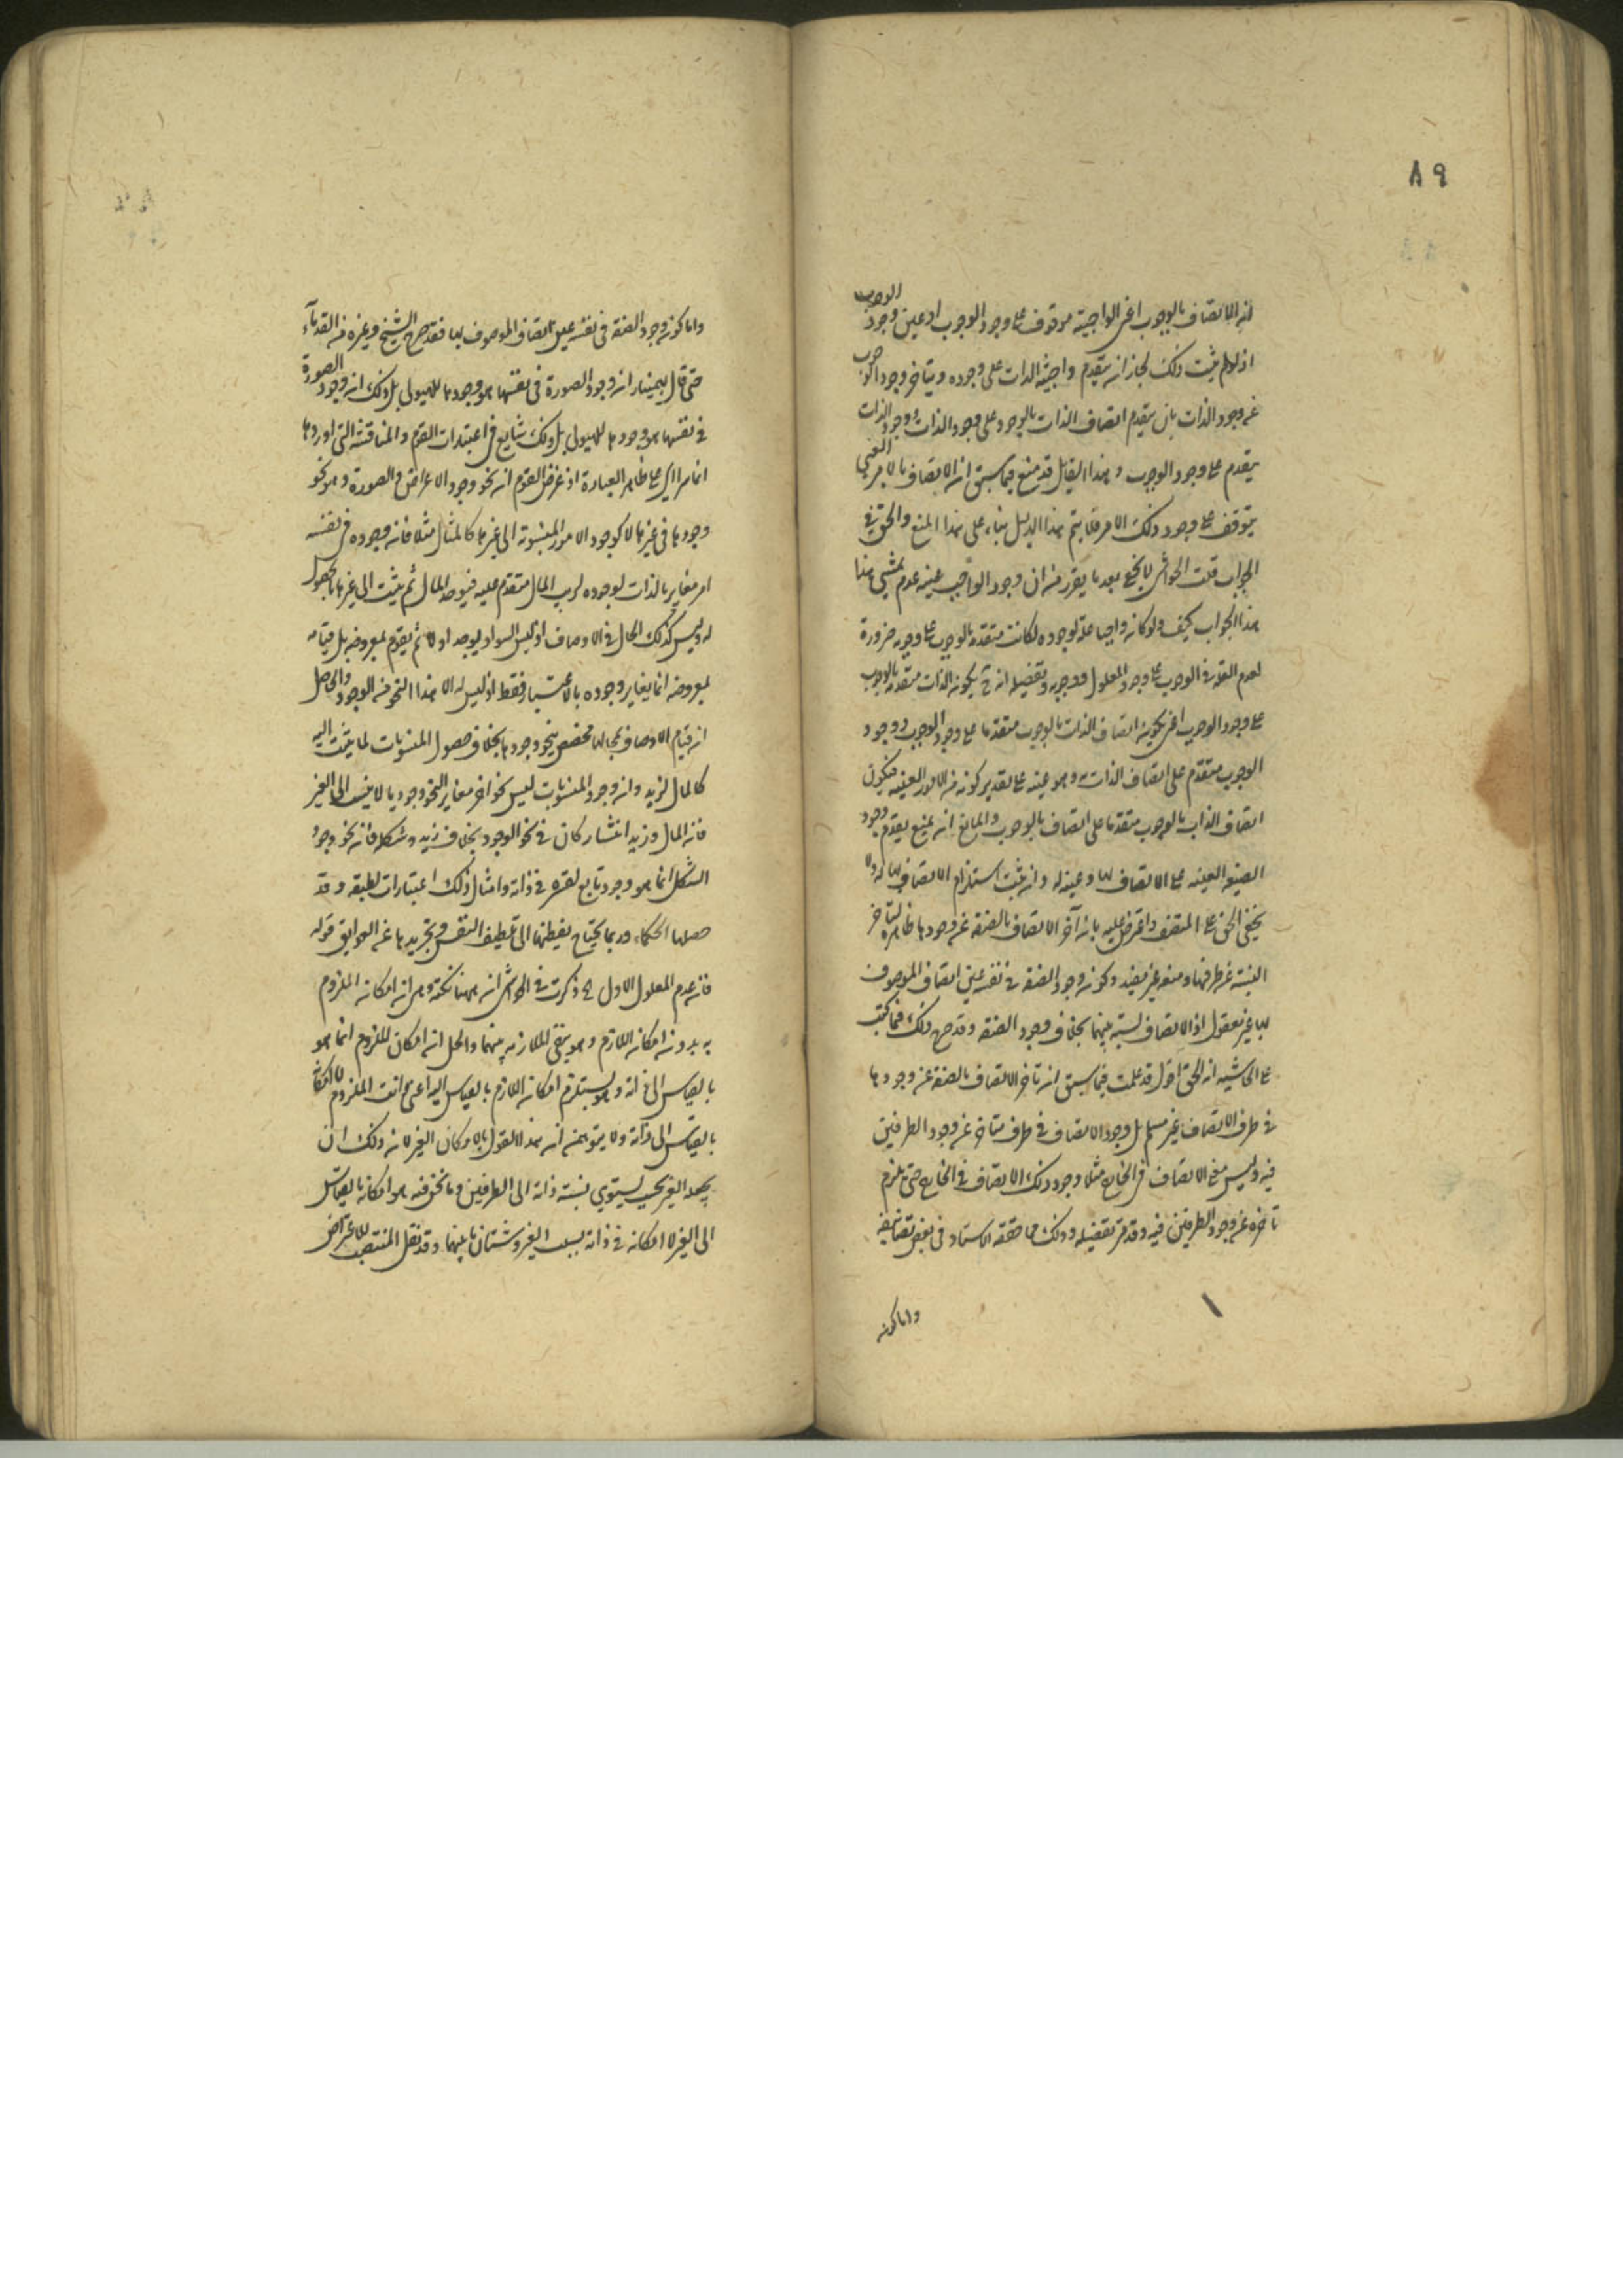 ٨٩
ان الاتصاف بالوجوب اعنى الواجبية موقوف على وجود الوجوب او عين وجود الوجوب
اذ لو لم يثبت ذلك لجاز ان يتقدم واجبية الذات على وجوده ويتأخر وجود الوجوب
عن وجود الذات بان يتقدم اتصاف الذات بالوجود على وجود الذات ووجود الذات
يتقدم على وجود الوجوب وهذا القايل قد منع فيما سبق ان الاتصاف بالامر العينى
يتوقف على وجود ذلك الامر فلا يتم هذا الدليل بناء على هذا المنع والحق فى
الجواب قلت الحواشى لا يخفى بعد ما يقرر من ان وجود الواجب عينه عدم تمشى هذا
هذا الجواب كيف ولو كان واجبا علة لوجوده لكانت متقدمة بالوجوب على وجوبه ضرورة
تقدم العلة فى الوجوب على وجود المعلول ووجوبه وتفصيله انه ح يكون الذات متقدمة بالوجوب
على وجود الوجوب اعنى يكون اتصاف الذات بالوجوب متقدما على وجود الوجوب ووجود
الوجوب متقدم على اتصاف الذات به وهو عينه على تقدير كونه من الامور العينية فيكون
اتصاف الذات بالوجوب متقدما على اتصاف بالوجوب والمانع ان يمنع تقدم وجود
الصفة العينية على الاتصاف بها وعينه له وان يثبت استلزام الاتصاف بها له ولا
يخفى الحق على المتفطن واعترض عليه بان تأخر الاتصاف بالصفة عن وجودها ظاهرة لتأخر
النسبة عن طرفيها ومنعه غير مفيد وكون وجود الصفة فى نفسه عين اتصاف الموصوف
بها غير معقول اذ الاتصاف نسبة بينهما بخلاف وجود الصفة وقد صرح ذلك فيما كتب
على الحاشية انه الحق اقول قد علمت فيما سبق ان تأخر الاتصاف بالصفة عن وجودها
فى ظرف الاتصاف غير مسلم بل وجود الاتصاف فى ظرف متأخر عن وجود الطرفين
فيه وليس معنى الاتصاف فى الخارج مثلا وجود ذلك الاتصاف فى الخارج حتى يلزم
تأخره عن وجود الطرفين فيه وقد مر تفصيله وذلك مما حققه الاستاد فى بعض تصانيفه
واما كون
واما كون وجود الصفة فى نفسه عين اتصاف الموصوف بها فقد صرح الشيخ وغيره من القدماء
حتى قال بهمنيار ان وجود الصورة فى نفسها هو وجودها للهيولى بل ذلك ان وجود الصورة
فى نفسها هو وجودها للهيولى بل ذلك شايع فى اعتبارات القوم والمناقشة التى اوردها
انما يراى على ظاهر العبارة اذ غرض القوم ان نحو وجود الاعراض والصورة وهو نحو
وجودها فى غيرها لا كوجود الامور المنسوبة الى غيرها كالمال مثلا فان وجوده فى نفسه
امر مغاير بالذات لوجوده لرب المال متقدم عليه فيوجد المال ثم يثبت الى غيرها بالحصول
له وليس كذلك الحال فى الاوصاف اذ ليس السواد يوجد اولا ثم يقوم بمعروضه بل قيامه
بمعروضه انما يغاير وجوده بالاعتبار فقط اذ ليس له الا هذا النحو من الوجود والحاصل
ان قيام الاوصاف بمحالها مخصص بنحو وجودها بخلاف حصول المنسوبات لما ينسب اليه
كالمال لزيد وان وجود المنسوبات ليس نحوا اخر مغاير النحو وجود ما لا ينسب الى الغير
فان المال وزيد انتشار كان فى نحو الوجود بخلاف زيد وشكله فان نحو وجود
الشكل انما هو وجود تابع لغيره فى ذاته وامثال ذلك اعتبارات لطيفة وقد
حصلها الحكماء وربما يحتاج تفطنها الى تلطيف النفس وتجريدها عن العوايق قوله
فان عدم المعلول الاول الخ ذكرت فى الحواشى انه ههنا نكتة وهى ان امكان الملزوم
به بدون امكان اللازم وهو ينفى الملازمة بينهما والحل ان امكان الملزوم انما هو
بالقياس الى ذاته وهو يستلزم امكان اللازم بالقياس اليه اعنى ذات الملزوم لا امكانه
بالقياس الى ذاته ولا يتوهمن انه هذا القول بالامكان الغير لان ذلك ان
يجعله الغير بحيث يستوى نسبة ذاته الى الطرفين وما نحن فيه هو امكانه بالقياس
الى الغير لا امكانه فى ذاته بسبب الغير وشتان ما بينهما وقد نقل المنتصب للاعتراض